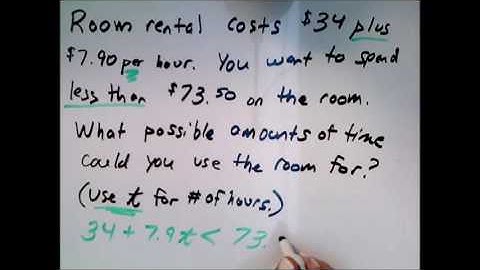 Room rental costs $34 plus
$7.90 per hour. You want to spend
less than $73.50 on the room.
What possible amounts of time
could you use the room for?
(Use t for # of hours.)
34 + 7.9t < 73.